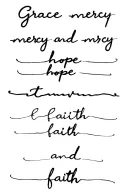 Grace mercy
mercy and mercy
hope
hope
faith
faith
and
faith